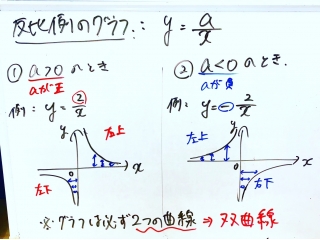 反比例のグラフ: y = a/x
① a>0 のとき
aが正
例: y = 2/x
y
右上
x
0
左下
② a<0 のとき.
aが負
例: y = - 2/x
y
左上
x
0
右下
※ グラフは必ず2つの曲線 ⇒ 双曲線